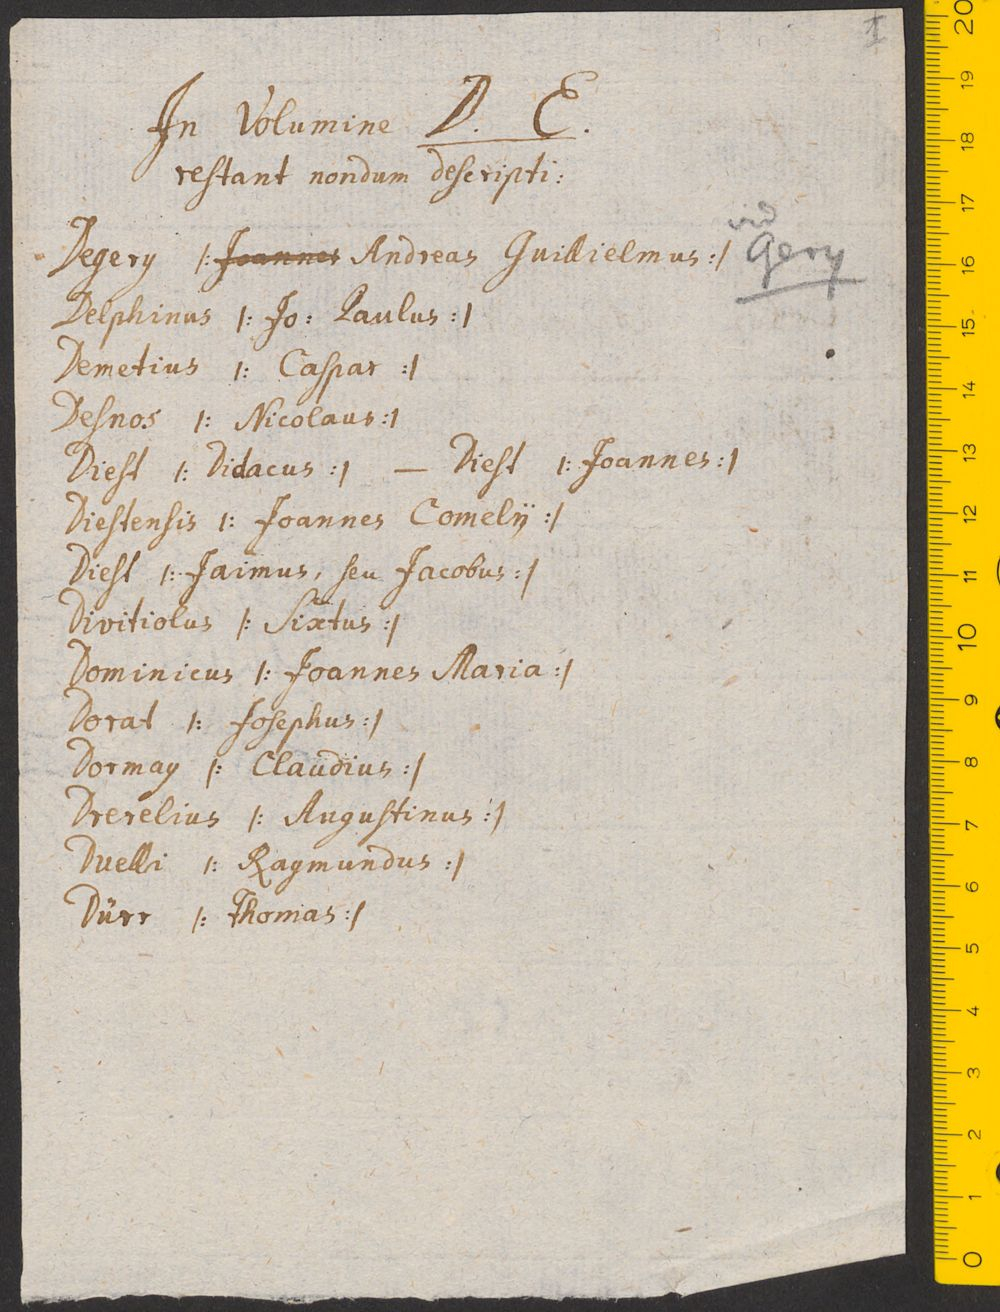 1
In Volumine D. E.
restant nondum descripti:
vid
Degery /: Joannes Andreas Guillielmus :/ Gery
Delphinus /: Jo: Paulus :/
Demetius /: Caspar :/
Desnos /: Nicolaus :/
Diest /: Didacus :/ — Diest /: Joannes :/
Diestensis /: Joannes Cornelÿ :/
Diest /: Jaimus, seu Jacobus :/
Divitiolus /: Sixtus :/
Dominicus /: Joannes Maria :/
Dorat /: Josephus :/
Dormay /: Claudius :/
Drexelius /: Augustinus :/
Duelli /: Raymundus :/
Dürr /: Thomas :/
20
19
18
17
16
15
14
13
12
11
10
9
8
7
6
5
4
3
2
1
0